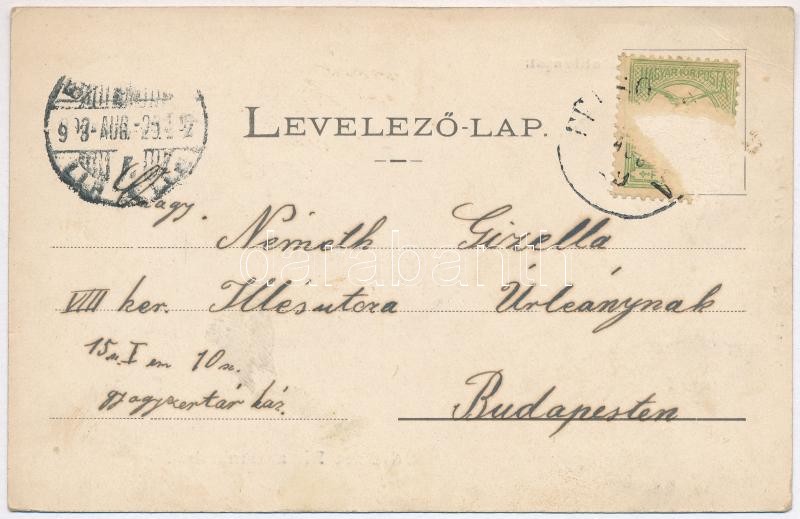 LEVELEZŐ-LAP.
MAGYAR KIR. POSTA
903-AUG.-29
Nagy.
Németh Gizella
VIII ker. Illésutcza Úrleánynak
15 I em 10
gyógyszertár ház.
Budapesten
darabanth